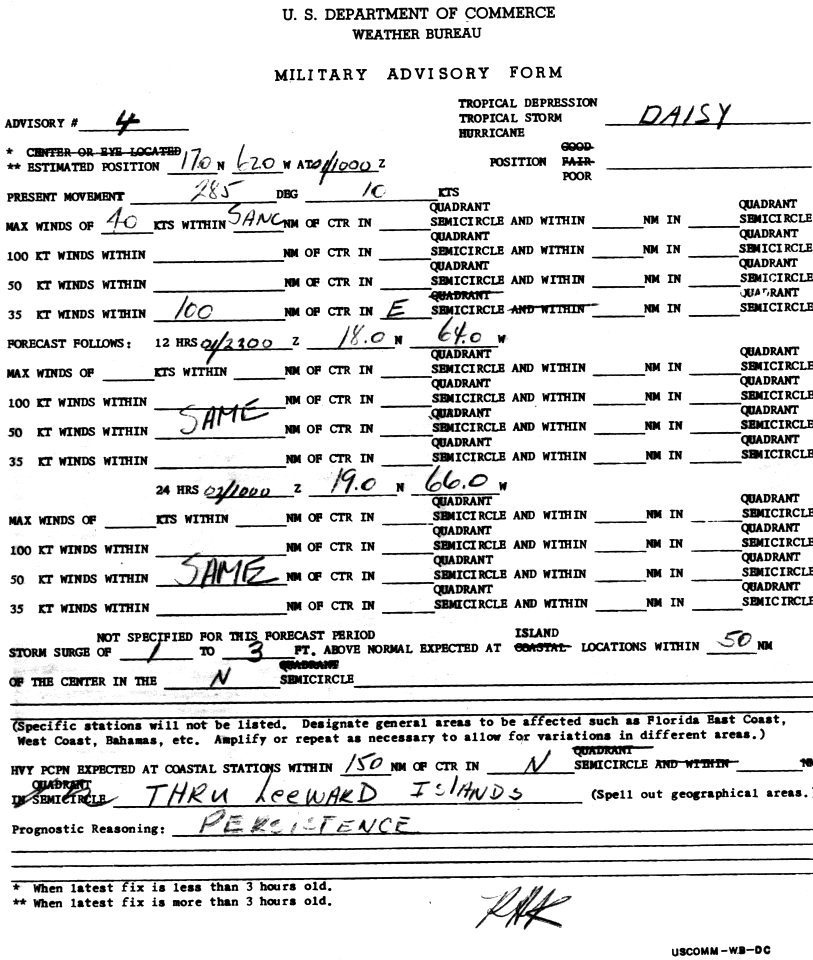 U. S. DEPARTMENT OF COMMERCE
WEATHER BUREAU
MILITARY ADVISORY FORM
TROPICAL DEPRESSION
ADVISORY # 4 TROPICAL STORM DAISY
HURRICANE
* CENTER OR EYE LOCATED GOOD
** ESTIMATED POSITION 17.0 N 62.0 W AT 01/1000 Z POSITION FAIR
POOR
PRESENT MOVEMENT 285 DEG 10 KTS
QUADRANT QUADRANT
MAX WINDS OF 40 KTS WITHIN NM OF CTR IN SEMICIRCLE AND WITHIN NM IN SEMICIRCLE
QUADRANT QUADRANT
100 KT WINDS WITHIN NM OF CTR IN SEMICIRCLE AND WITHIN NM IN SEMICIRCLE
QUADRANT QUADRANT
50 KT WINDS WITHIN NM OF CTR IN SEMICIRCLE AND WITHIN NM IN SEMICIRCLE
QUADRANT QUADRANT
35 KT WINDS WITHIN 100 NM OF CTR IN E SEMICIRCLE AND WITHIN NM IN SEMICIRCLE
FORECAST FOLLOWS: 12 HRS 01/2200 Z 18.0 N 64.0 W
QUADRANT QUADRANT
MAX WINDS OF KTS WITHIN NM OF CTR IN SEMICIRCLE AND WITHIN NM IN SEMICIRCLE
QUADRANT QUADRANT
100 KT WINDS WITHIN NM OF CTR IN SEMICIRCLE AND WITHIN NM IN SEMICIRCLE
SAME QUADRANT QUADRANT
50 KT WINDS WITHIN NM OF CTR IN SEMICIRCLE AND WITHIN NM IN SEMICIRCLE
QUADRANT QUADRANT
35 KT WINDS WITHIN NM OF CTR IN SEMICIRCLE AND WITHIN NM IN SEMICIRCLE
24 HRS 02/1000 Z 19.0 N 66.0 W
QUADRANT QUADRANT
MAX WINDS OF KTS WITHIN NM OF CTR IN SEMICIRCLE AND WITHIN NM IN SEMICIRCLE
QUADRANT QUADRANT
100 KT WINDS WITHIN NM OF CTR IN SEMICIRCLE AND WITHIN NM IN SEMICIRCLE
QUADRANT QUADRANT
50 KT WINDS WITHIN SAME NM OF CTR IN SEMICIRCLE AND WITHIN NM IN SEMICIRCLE
QUADRANT QUADRANT
35 KT WINDS WITHIN NM OF CTR IN SEMICIRCLE AND WITHIN NM IN SEMICIRCLE
NOT SPECIFIED FOR THIS FORECAST PERIOD ISLAND
STORM SURGE OF 1 TO 3 FT. ABOVE NORMAL EXPECTED AT COASTAL LOCATIONS WITHIN 50 NM
QUADRANT
OF THE CENTER IN THE N SEMICIRCLE
(Specific stations will not be listed. Designate general areas to be affected such as Florida East Coast,
West Coast, Bahamas, etc. Amplify or repeat as necessary to allow for variations in different areas.)
QUADRANT
HVY PCPN EXPECTED AT COASTAL STATIONS WITHIN 150 NM OF CTR IN N SEMICIRCLE AND WITHIN NM
QUADRANT
IN SEMICIRCLE THRU LEEWARD ISLANDS (Spell out geographical areas.)
Prognostic Reasoning: PERSISTENCE
* When latest fix is less than 3 hours old.
** When latest fix is more than 3 hours old.
USCOMM-WB-DC